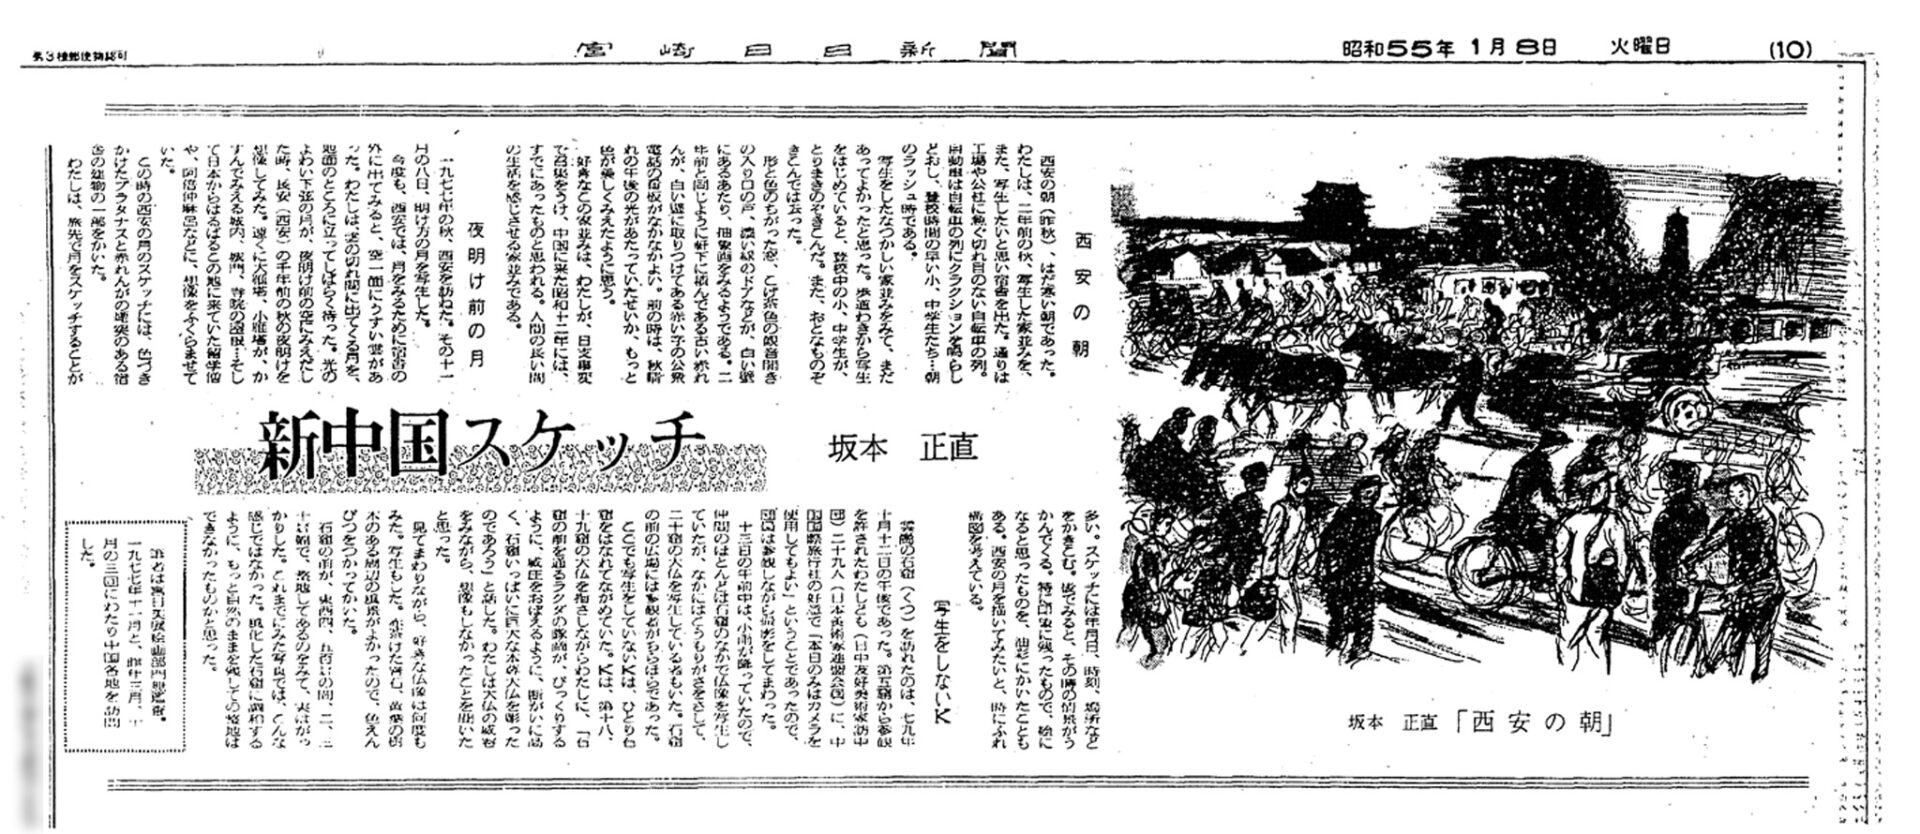 第3種郵便物認可
宮崎日日新聞
昭和55年1月8日 火曜日 (10)
西安の朝
西安の朝(昨秋)、はだ寒い朝であった。
わたしは、二年前の秋、写生した家並みを、
また、写生したいと思い宿舎を出た。通りは
工場や公社に急ぐ切れ目のない自転車の列。
自動車は自転車の列にクラクションを鳴らし
どおし、登校時間の早い小、中学生たち…朝
のラッシュ時である。
写生をしたなつかしい家並みをみて、まだ
あってよかったと思った。歩道わきから写生
をはじめていると、登校中の小、中学生が、
とりまきのぞきこんだ。また、おとなものぞ
きこんでは去った。
形と色のちがった窓、こげ茶色の観音開き
の入り口の戸、濃い緑のドアなどが、白い壁
にあるあたり、抽象画をみるようである。二
年前と同じように軒下に積んである古い赤れ
んが、白い壁に取りつけてある赤い字の公衆
電話の看板がなかなかよい。前の時は、秋晴
れの午後の光があたっていたせいか、もっと
色が美しくみえたように思う。
好きなこの家並みは、わたしが、日支事変
で召集をうけ、中国に来た昭和十二年には、
すでにあったものと思われる。人間の長い間
の生活を感じさせる家並みである。
夜明け前の月
一九七七年の秋、西安を訪ねた。その十一
月の八日、明け方の月を写生した。
今度も、西安では、月をみるために宿舎の
外に出てみると、空一面にうすい雲があ
った。わたしは、雲の切れ間に出てくる月を、
地面のところに立ってしばらく待った。光の
よわい下弦の月が、夜明け前の空にみえだし
た時、長安(西安)の千年前の秋の夜明けを
想像してみた。遠くに大雁塔、小雁塔が、か
すんでみえる城内、城門、寺院の屋根…そし
て日本からはるばるとこの地に来ていた留学僧
や、阿倍仲麻呂などに、想像をふくらませて
いた。
この時の西安の月のスケッチには、色づき
かけたプラタナスと赤れんがの煙突のある宿
舎の建物の一部をかいた。
わたしは、旅先で月をスケッチすることが
新中国スケッチ
坂本 正直
多い。スケッチには年月日、時刻、場所など
をかきこむ。後でみると、その時の情景がう
かんでくる。特に印象に残ったもので、絵に
なると思ったものを、油彩にかいたことも
ある。西安の月を描いてみたいと、時にふれ
構図を考えている。
写生をしないK
雲崗の石窟(くつ)を訪れたのは、七九年
十月十二日の午後であった。第五窟から参観
を許されたわたしども(日中友好美術家訪中
団)二十九人(日本美術家連盟会員)に、中
国国際旅行社の好意で「本日のみはカメラを
使用してもよい」ということであったので、
団員は参観しながら撮影をしてまわった。
十三日の午前中は、小雨が降っていたので、
仲間のほとんどは石窟のなかで仏像を写生し
ていたが、なかにはどうもりがさをさして、
二十窟の大仏を写生している者もいた。石窟
の前の広場には参観者がちらほらであった。
ここでも写生をしていないKは、ひとり石
窟をはなれてながめていた。Kは、第十八、
十九窟の大仏を指さしながらわたしに、「石
窟の前を通るラクダの隊商が、びっくりする
ように、威圧をおぼえるように、断がいに高
く、石窟いっぱいに巨大な本尊大仏を彫った
のであろう」と話した。わたしは大仏の威容
をみながら、想像もしなかったことを聞いた
と思った。
見てまわりながら、好きな仏像は何度も
みた。写生もした。
木のある周辺の風景がよかったので、色えん
ぴつをつかってかいた。
石窟の前が、東西四、五百㍍の間、二、三
十㍍幅で、整地してあるのをみて、実はがっ
かりした。これまでにみた写真では、こんな
感じではなかった。風化した石窟に調和する
ように、もっと自然のままを残しての整地は
できなかったものかと思った。
筆者は宮日美展絵画部門無鑑査。
一九七七年十一月と、昨年三月、十
月の三回にわたり中国各地を訪問
した。
坂本 正直「西安の朝」